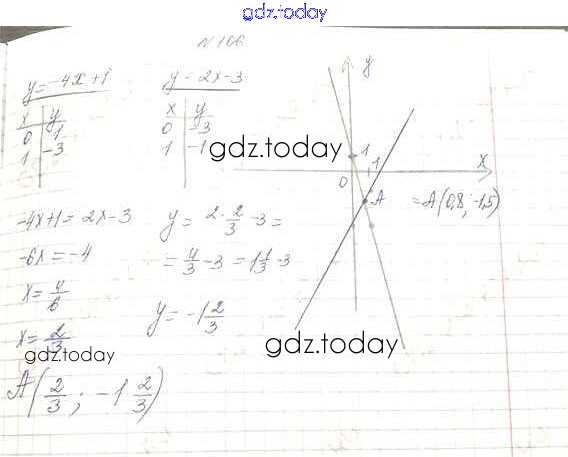 gdz.today
№166
y = -4x+1
x y
0 1
1 -3
y = 2x-3
x y
0 -3
1 -1
gdz.today
y
1
1
x
0
A
= A(0,8; -1,5)
-4x+1 = 2x-3
-6x = -4
x = 4/6
x = 2/3
gdz.today
y = 2·2/3 -3 =
= 4/3 -3 = 1 1/3 -3
y = -1 2/3
gdz.today
A(2/3; -1 2/3)